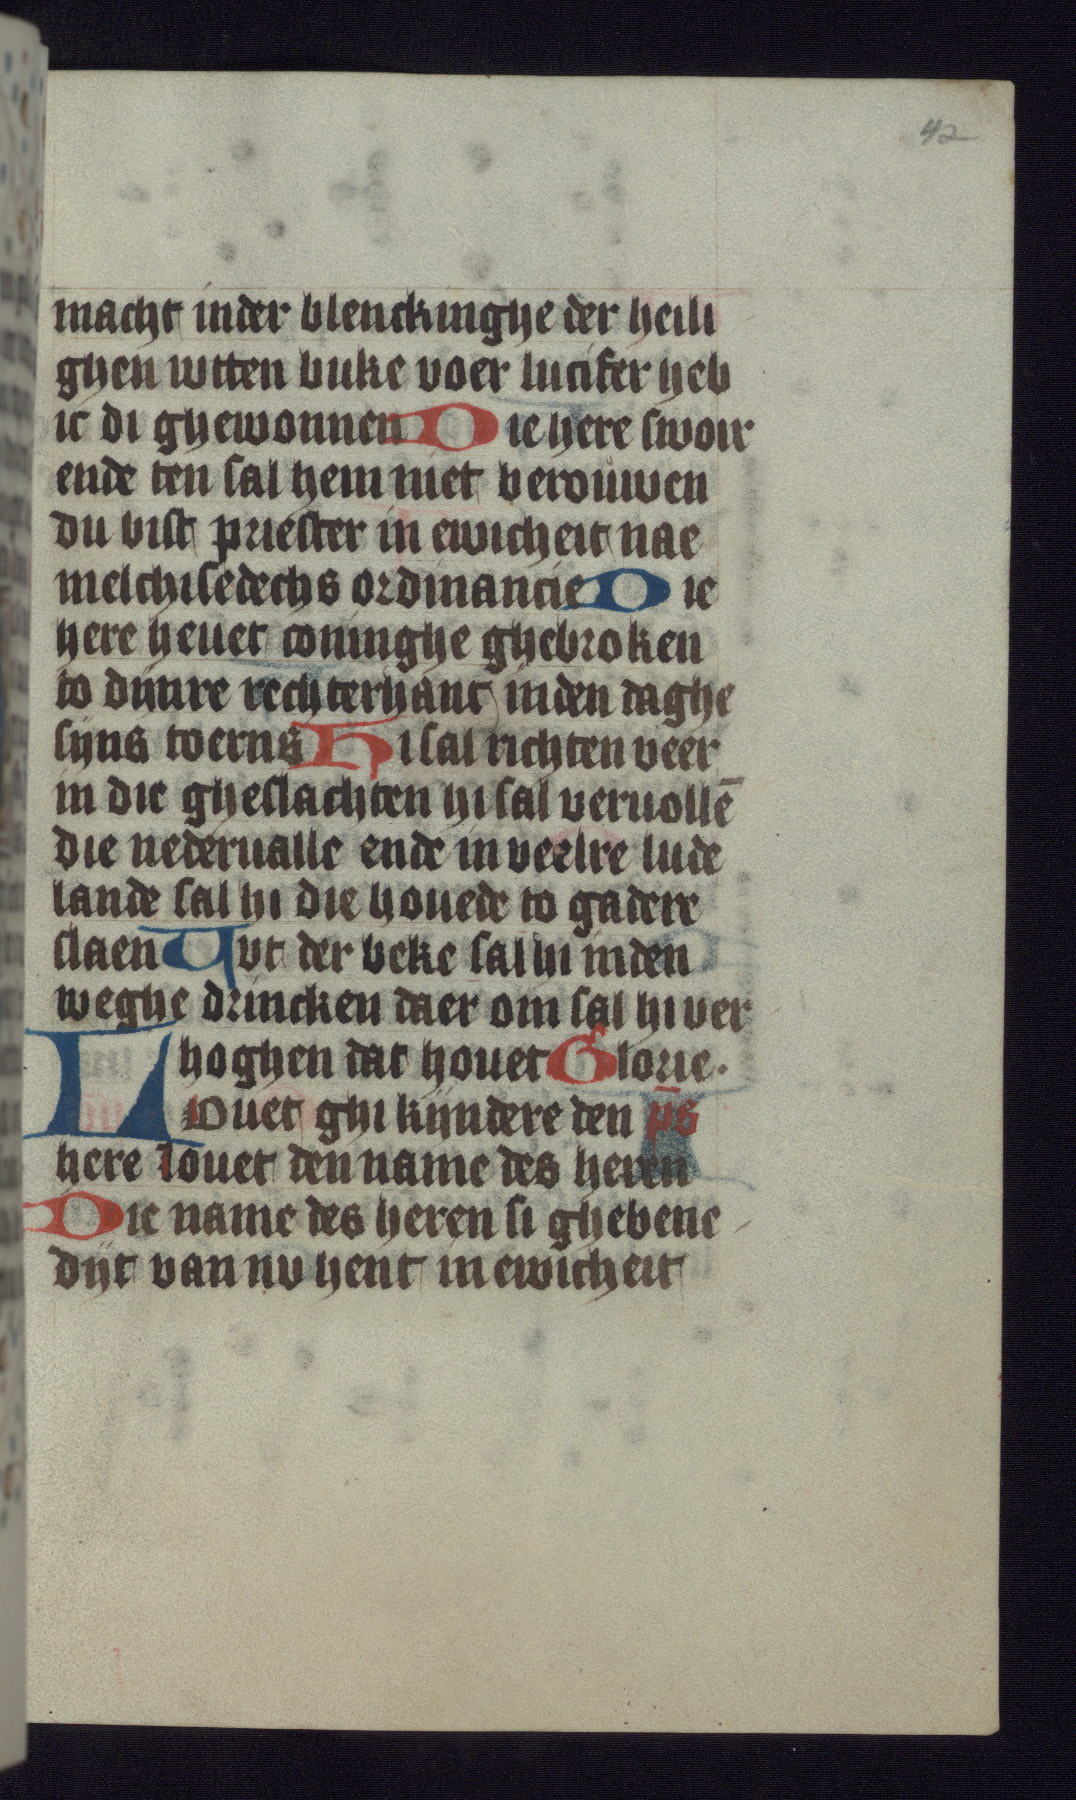 42
macht inder blenckinghe der heili
ghen witten buke voer lucifer heb
ic di ghewonnen Die here swoir
ende ten sal hem niet berouwen
du bist priester in ewicheit nae
melchisedechs ordinancie Die
here heuet coninghe ghebroken
to dijnre rechterhant inden daghe
sijns toerns Hi sal richten veer
in die gheslachten hi sal veruollē
die nederualle ende in veelre lude
lande sal hi die houede to gadere
slaen Uvt der beke sal hi inden
weghe drincken daer om sal hi ver
hoghen dat houet Glorie.
Louet ghi kijndere den ps̄
here louet den name des heren
Die name des heren si ghebene
dijt van nv hent in ewicheit